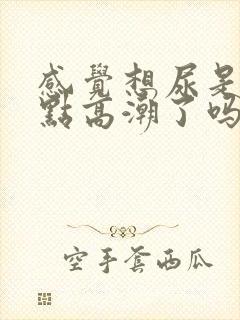 感覺想尿是
點高潮了吗
空手套西瓜